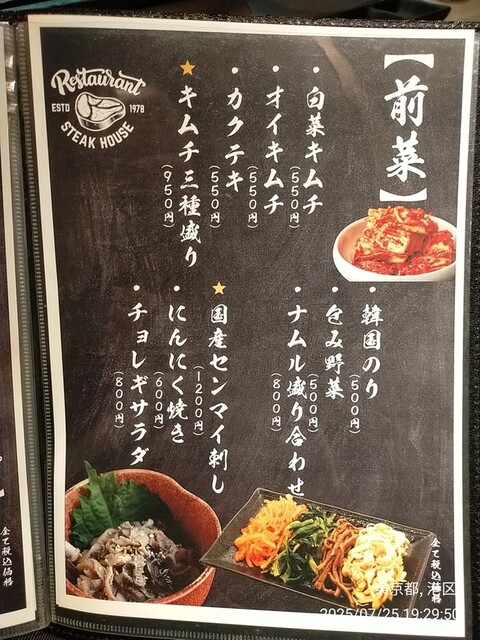 Restaurant
ESTD 1978
STEAK HOUSE
【前菜】
・白菜キムチ
(550円)
・オイキムチ
(550円)
・カクテキ
(550円)
★キムチ三種盛り
(950円)
・韓国のり
(500円)
・包み野菜
(500円)
・ナムル盛り合わせ
(800円)
★国産センマイ刺し
(1200円)
・にんにく焼き
(600円)
・チョレギサラダ
(800円)
全て税込価格
全て税込価格
東京都,港区
2025/07/25 19:29:50